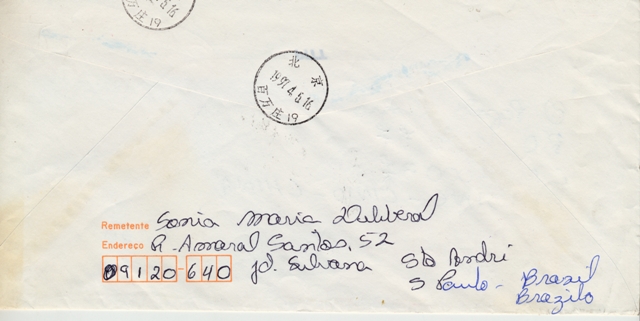 百万庄19
北京
1997.4.6.16
百万庄19
Remetente Sonia Maria
Endereço R. Amaral Santos, 52
09120-640 Jd. Silvana Sto André
S Paulo - Brasil
Brazilo